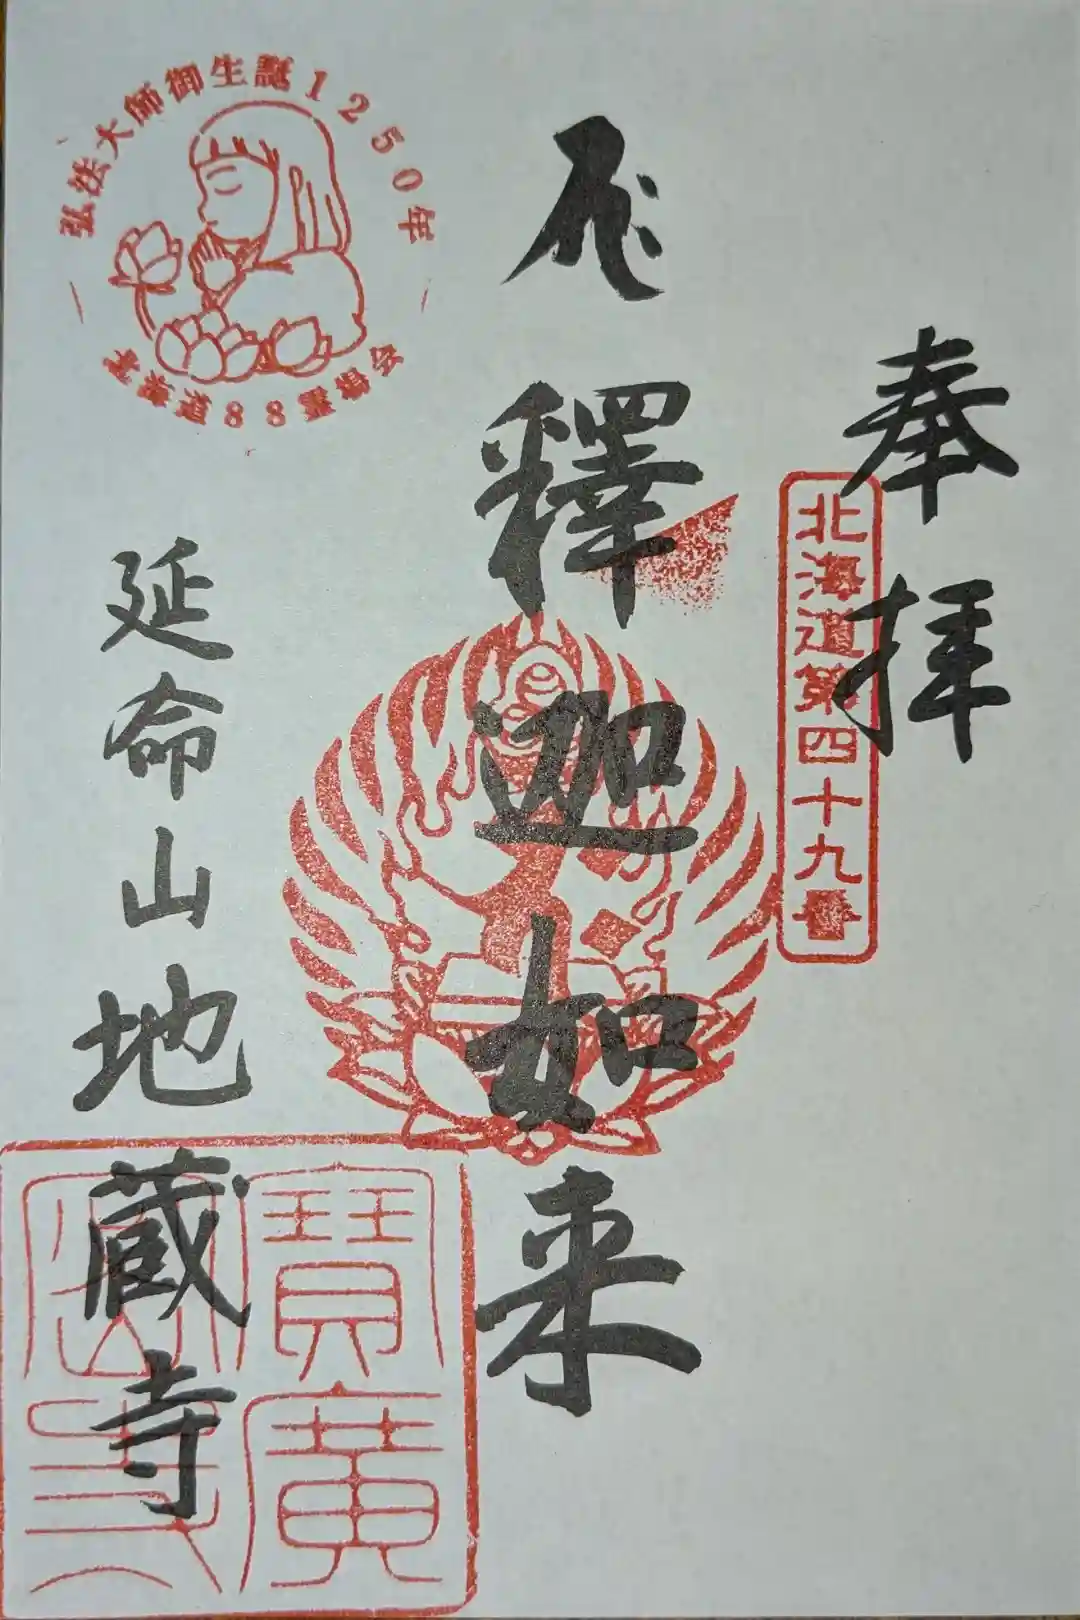 奉拝
北海道第四十九番
釋迦如来
弘法大師御生誕1250年
北海道88霊場会
延命山地蔵寺